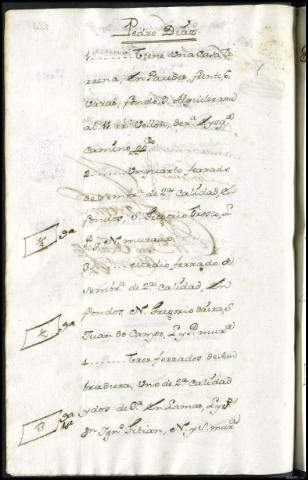 Pedro Diaz
1....... Tiene Una Casa Te
rrena, En Paredes, frente 6
varas, fondo 9. Alquilerand
al 11 rr.s Vellon, der.a
Camino
2....... Un quarto ferrado
de Sembr.a de 2.a Calidad, En
fondos, S. Gregorio
P. y N. murado.
3....... medio ferrado de
Sembr.a de 2.a Calidad, En
fondos, N. Gregorio Seira, S
Juan do Campo, L. y P. mur.s
4....... Tres ferrados de Sem
bradura, Uno de 2.a Calidad
y dos de 3.a En Lamas, L. y P.
Ign.o Sitian, N. y S. mur.s
1/4 2a
1/2 2a
3 2a